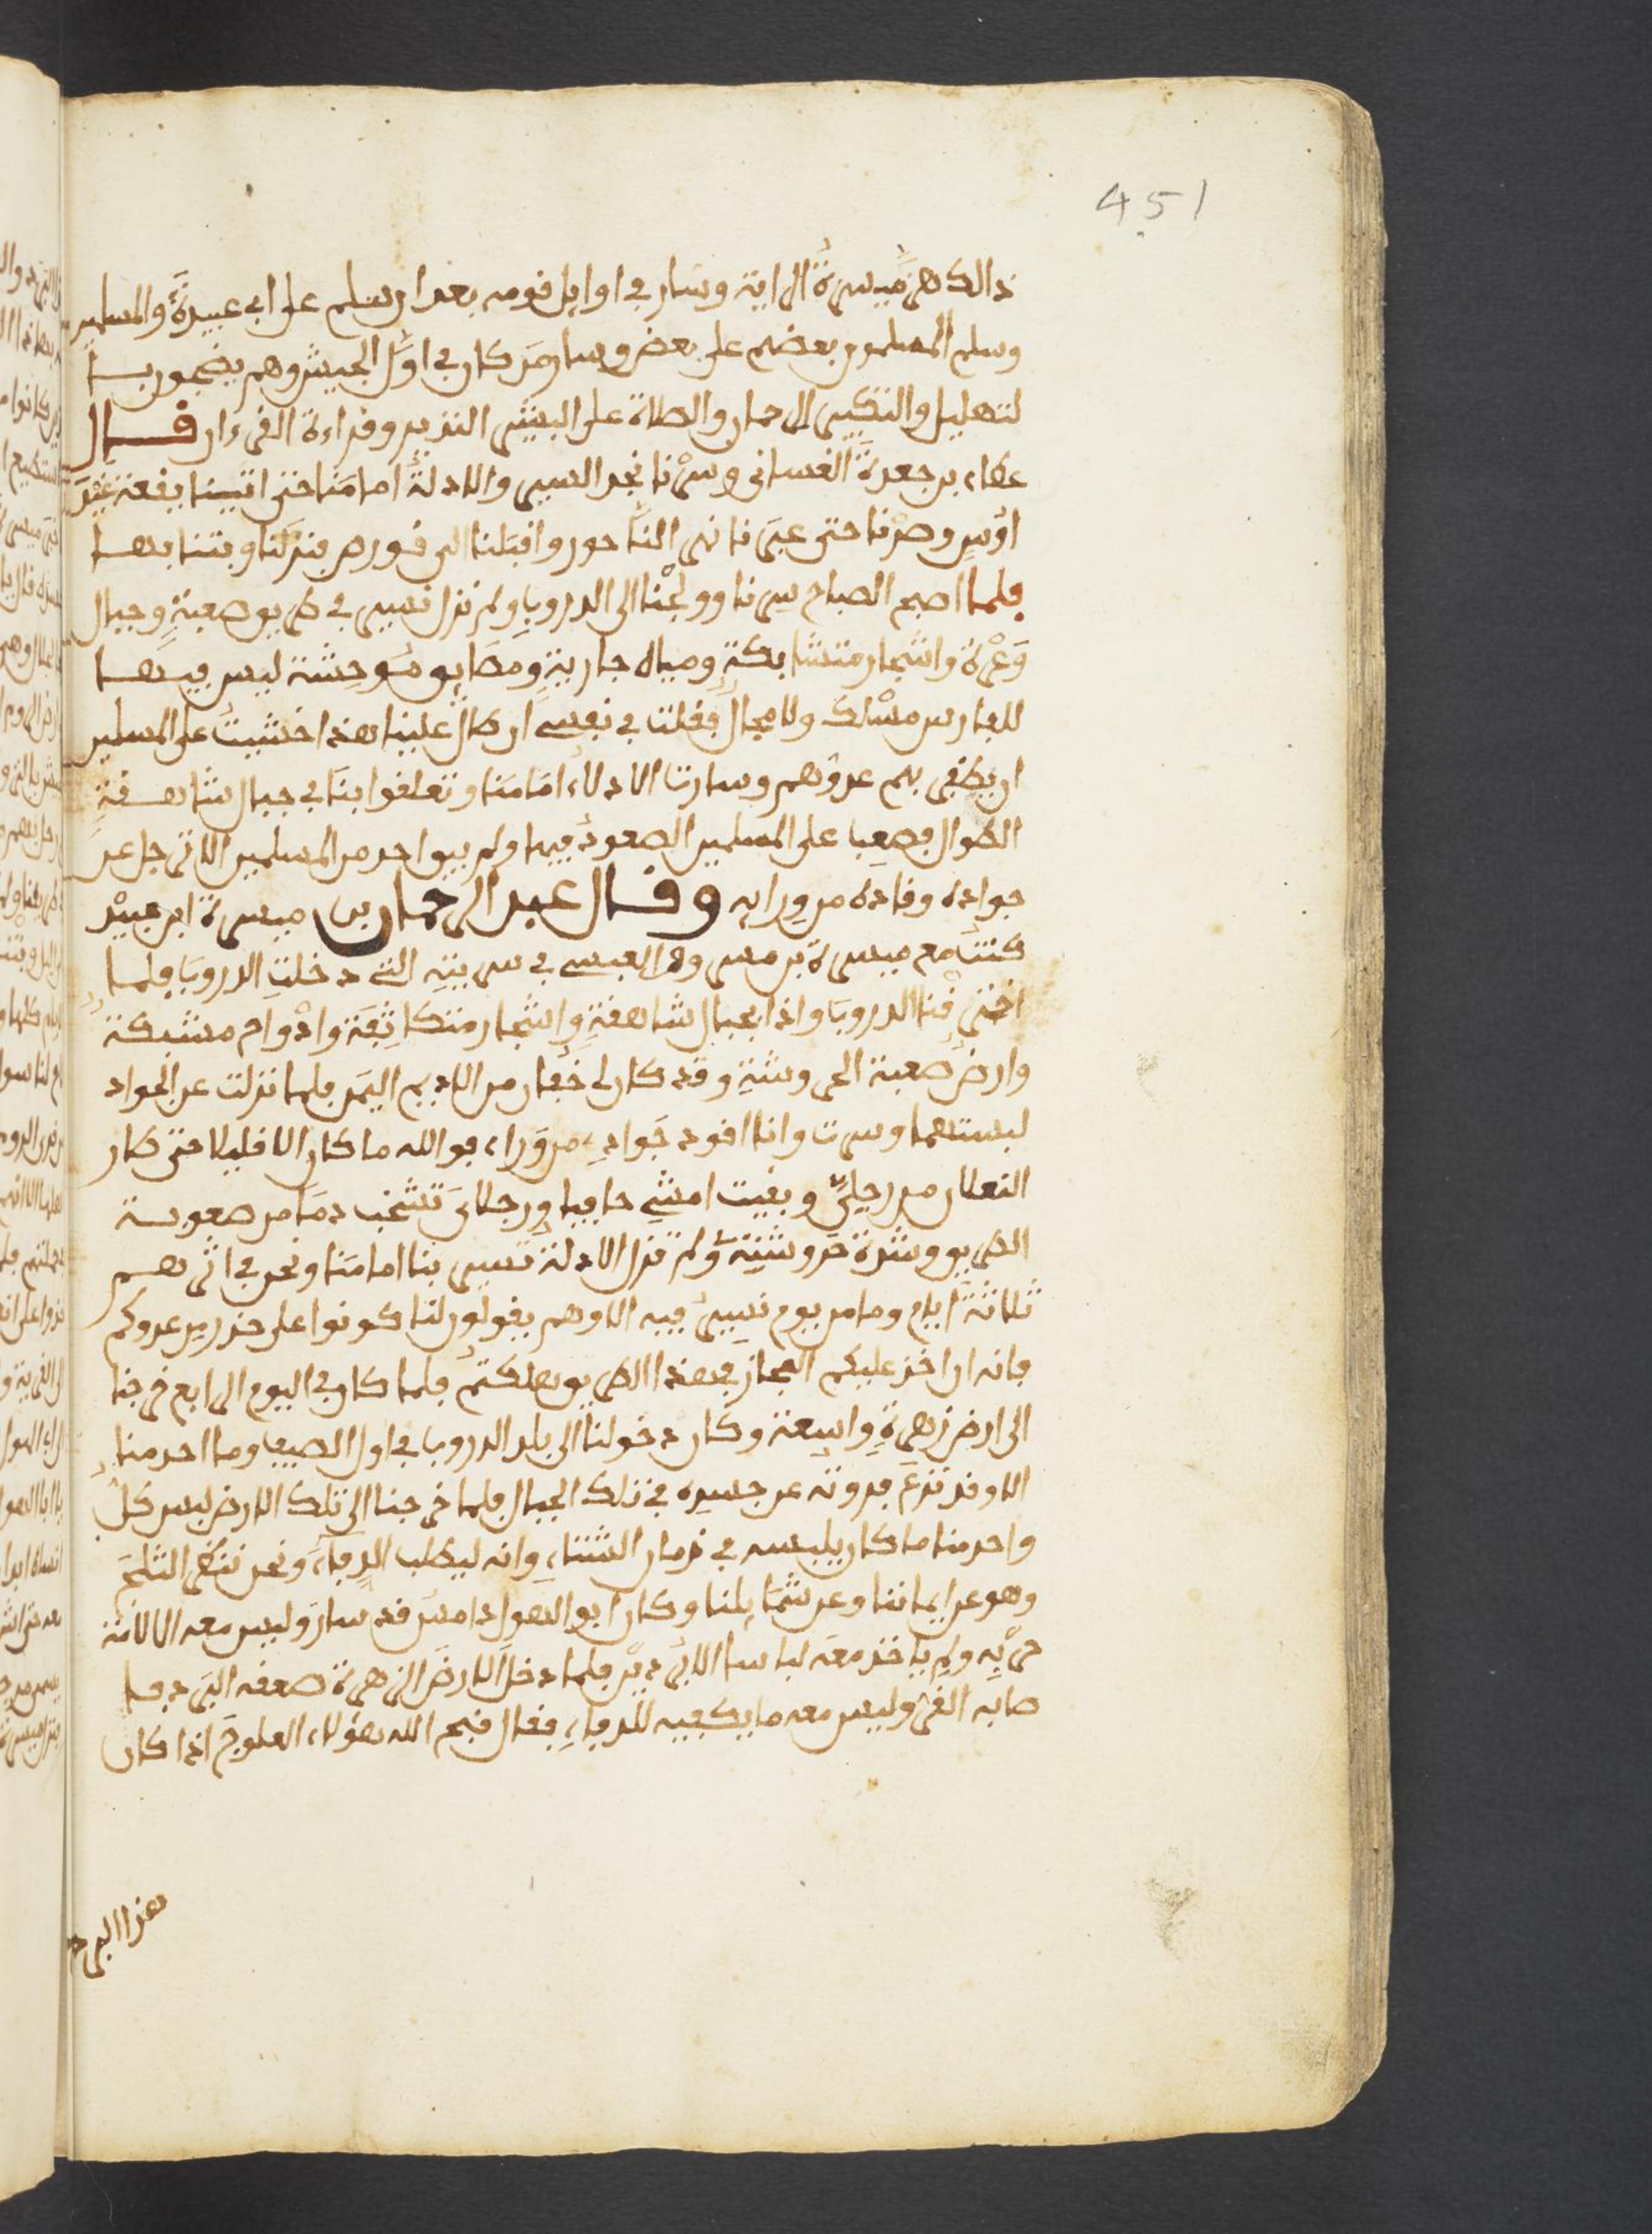 451
ذالك هز ميسرة الراية وسار في اوايل قومه بعد ان سلم على ابي عبيدة والمسلمين
وسلم المسلمون بعضهم على بعض وسار من كان في اول الجيش وهم يضجون با
لتهليل والتكبير للرحمان والصلاة على البشير النذير وقراءة القرءان قال
عطاء بن جعدة الغساني وسرنا نجد السير والادلة امامنا حتى اتينا بقعة عند
اوس وصرنا حتى عبرنا نهر الناحور واقبلنا الى قورص فنزلنا وبتنا بها
فلما اصبح الصباح سرنا وولجنا الى الدروب ولم نزل نسير في طريق صعبة وجبال
وعرة واشجار متشابكة ومياه جارية ومضايق موحشة ليس فيها
للفارس مسلك ولا مجال فقلت في نفسي ان طال علينا هذا خشيت على المسلمين
ان يظفر بهم عدوهم وسارت الادلاء امامنا وتعلقوا بنا في جبال شاهقة
الطوال فصعبا على المسلمين الصعود فيها ولم يبق احد من المسلمين الا ترجل عن
جواده وقاده من ورايه وقال عبد الرحمان بن ميسرة ابن عبيد
كنت مع ميسرة بن مسروق العبسي في سريته التي دخلت الدروب فلما
اخترقنا الدروب واذا بجبال شاهقة واشجار متكاثفة وادوام مشبكة
وارض صعبة الحروشة وقد كان لي خفان من الاديم اليمن فلما نزلت عن الجواد
لبستهما وسرت وانا اقود جوادي من وراء فوالله ما كان الا قليلا حتى طار
النعلان من رجلي وبقيت امشي حافيا ورجلاي تشخب دما من صعوبة
الطريق وشدة حروشته ولم تزل الادلة تسير بنا امامنا ونحن في اثرهم
ثلاثة ايام وما من يوم نسير فيه الا وهم يقولون لنا كونوا على حذر من عدوكم
فانه ان اخذ عليكم المجاز في هذا الطريق هلكتم فلما كان في اليوم الرابع خرجنا
الى ارض زهرة واسعة وكان دخولنا الى بلد الدروب في اول الصيف وما احد منا
الا وقد نزع فروته عن جسده في تلك الجبال فلما خرجنا الى تلك الارض لبس كل
واحد منا ما كان يلبسه في زمان الشتاء وانه ليطلب الدفاء ونحن ننظر الثلج
وهو عن ايماننا وعن شمايلنا وكان ابو الهول دامس قد سار وليس معه الا لامة
حربه ولم ياخذ معه لباسا الا بردين فلما دخل الارض الزهرة صعفه البرد فا
صابه القر وليس معه ما يكفيه للدفاء فقال قبح الله هؤلاء العلوج اذا كان
هذا البرد